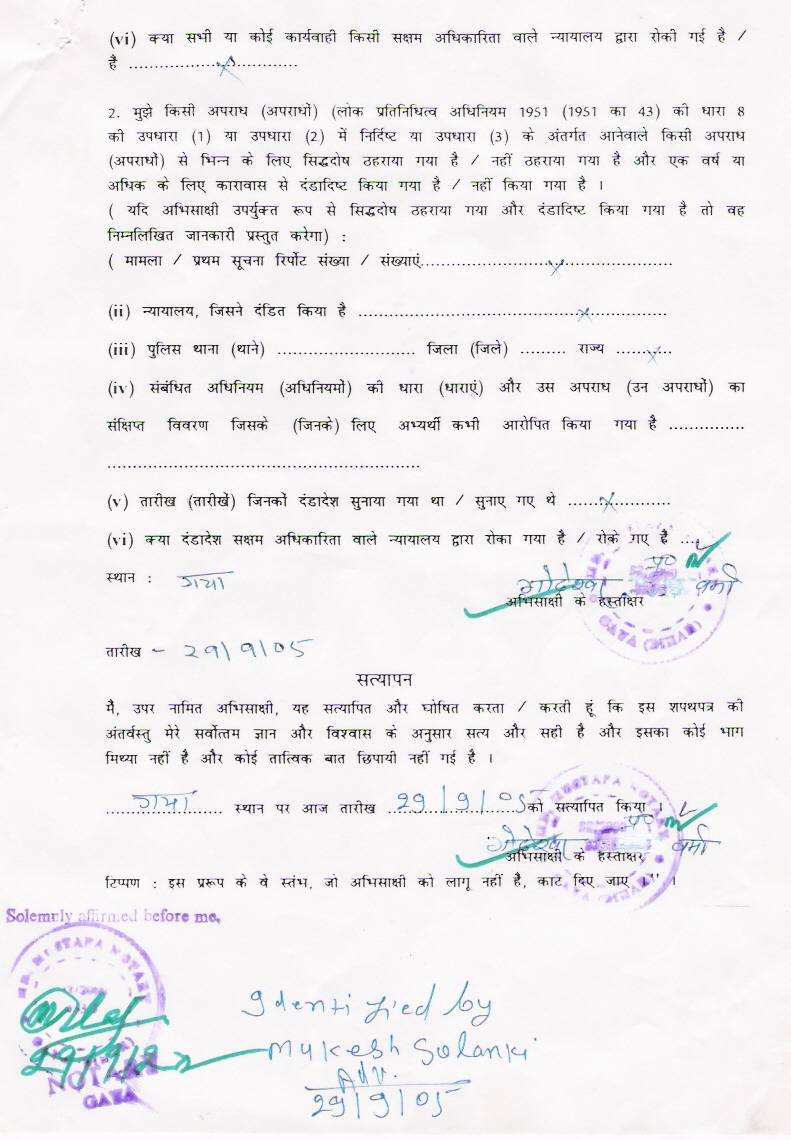 (vi) क्या सभी या कोई कार्यवाही किसी सक्षम अधिकारिता वाले न्यायालय द्वारा रोकी गई है /
है ..............................
2. मुझे किसी अपराध (अपराधों) (लोक प्रतिनिधित्व अधिनियम 1951 (1951 का 43) की धारा 8
की उपधारा (1) या उपधारा (2) में निर्दिष्ट या उपधारा (3) के अंतर्गत आनेवाले किसी अपराध
(अपराधों) से भिन्न के लिए सिद्धदोष ठहराया गया है / नहीं ठहराया गया है और एक वर्ष या
अधिक के लिए कारावास से दंडादिष्ट किया गया है / नहीं किया गया है ।
( यदि अभिसाक्षी उपर्युक्त रूप से सिद्धदोष ठहराया गया और दंडादिष्ट किया गया है तो वह
निम्नलिखित जानकारी प्रस्तुत करेगा) :
( मामला / प्रथम सूचना रिर्पोट संख्या / संख्याएं.............................................
(ii) न्यायालय, जिसने दंडित किया है ......................................................
(iii) पुलिस थाना (थाने) ......................... जिला (जिले) ......... राज्य ..........
(iv) संबंधित अधिनियम (अधिनियमों) की धारा (धाराएं) और उस अपराध (उन अपराधों) का
संक्षिप्त विवरण जिसके (जिनके) लिए अभ्यर्थी कभी आरोपित किया गया है ..............
.........................................................
(v) तारीख (तारीखें) जिनकों दंडादेश सुनाया गया था / सुनाए गए थे ...................
(vi) क्या दंडादेश सक्षम अधिकारिता वाले न्यायालय द्वारा रोका गया है / रोके गए हैं ....
स्थान : गया
प्र० वर्मा
अभिसाक्षी के हस्ताक्षर
GAYA (BIHAR)
तारीख - 29/9/05
सत्यापन
मैं, उपर नामित अभिसाक्षी, यह सत्यापित और घोषित करता / करती हूं कि इस शपथपत्र की
अंतर्वस्तु मेरे सर्वोत्तम ज्ञान और विश्वास के अनुसार सत्य और सही है और इसका कोई भाग
मिथ्या नहीं है और कोई तात्विक बात छिपायी नहीं गई है ।
गया स्थान पर आज तारीख 29/9/05 को सत्यापित किया ।
प्र० वर्मा
अभिसाक्षी के हस्ताक्षर
टिप्पण : इस प्ररूप के वे स्तंभ, जो अभिसाक्षी को लागू नहीं है, काट दिए जाए ।'' ।
Solemnly affirmed before me,
MUSTAFA NOTARY
NOTARY
GAYA
Identified by
Mukesh Solanki
Adv.
29/9/05